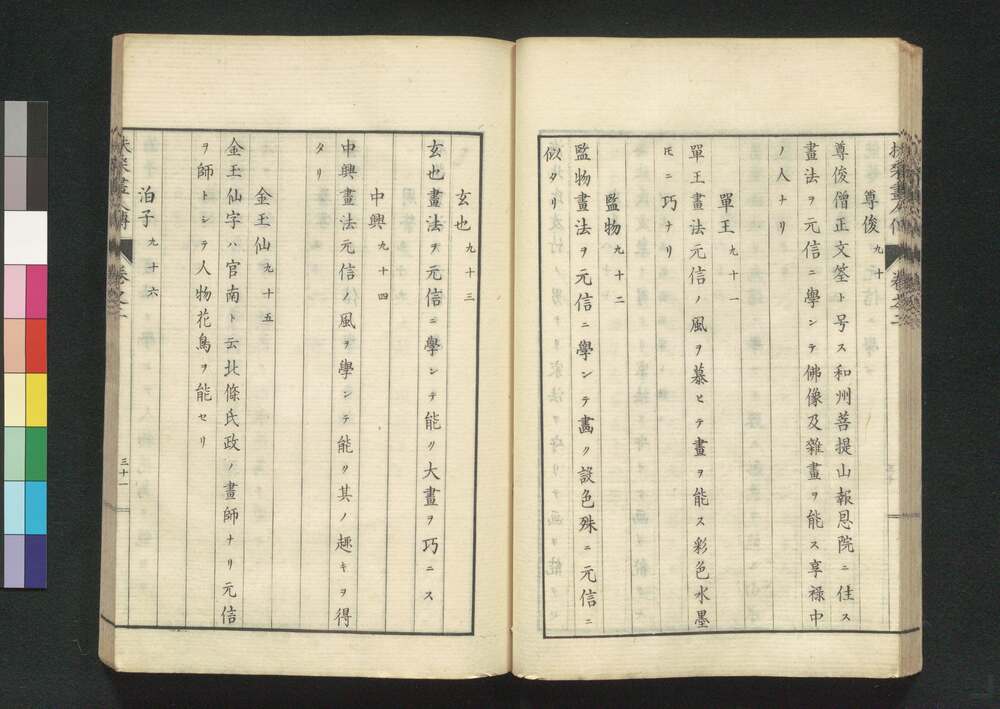 尊俊 九十
尊俊僧正文筌ト号ス和州菩提山報恩院ニ住ス
畫法ヲ元信ニ學ンテ佛像及雜畫ヲ能ス享祿中
ノ人ナリ
單王 九十一
單王畫法元信ノ風ヲ慕ヒテ畫ヲ能ス彩色水墨
𪜈ニ巧ナリ
監物 九十二
監物畫法ヲ元信ニ學ンテ畵ク設色殊ニ元信ニ
似タリ
玄也 九十三
玄也畫法ヲ元信ニ學ンテ能ク大畫ヲ巧ニス
中興 九十四
中興畫法元信ノ風ヲ學ンテ能ク其ノ趣キヲ得
タリ
金玉仙 九十五
金玉仙字ハ官南ト云北條氏政ノ畫師ナリ元信
ヲ師トシテ人物花鳥ヲ能セリ
泊子 九十六
卷之二
三十一